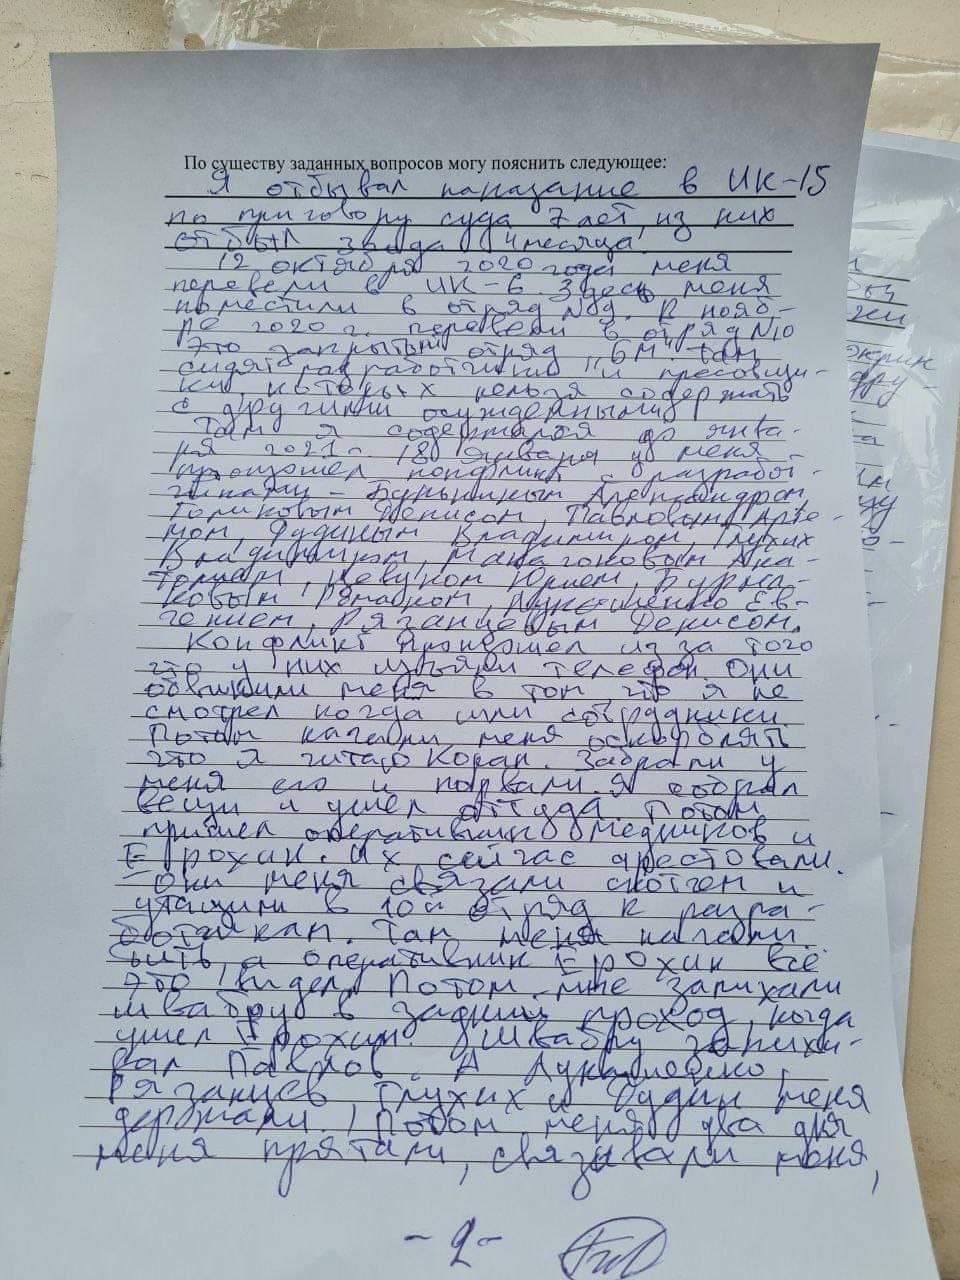 По существу заданных вопросов могу пояснить следующее:
Я отбывал наказание в ИК-15
по приговору суда 7 лет, из них
отбыл 3 года 4 месяца.
12 октября 2020 года меня
перевели в ИК-6. Здесь меня
поместили в отряд №9. В нояб-
ре 2020 г. перевели в отряд №10
Это закрытый отряд "БМ", там
сидят разработчики и пресовщи-
ки, которых нельзя содержать
с другими осужденными.
Там я содержался до янва-
ря 2021. 18 января у меня
произошел конфликт с разработ-
чиками - Александром,
Голиковым Денисом, Павловым Арте-
мом, Дудиным Владимиром, Глухих
Владимиром, Ана-
толием, Юрием, Бурма-
ковым Романом, Лукашенко Ев-
гением, Рязанцевым Денисом.
Конфликт произошел из за того
что у них изъяли телефон. Они
обвинили меня в том что я не
смотрел когда шли сотрудники.
Потом начали меня оскорблять
что я читаю Коран. Забрали у
меня его и порвали. Я собрал
вещи и ушел оттуда. Потом
пришел оперативник Медников и
Ерохин. Их сейчас арестовали.
Они меня связали скотчем и
утащили в 10й отряд к разра-
ботчикам. Там меня начали
бить, а оперативник Ерохин всё
это видел. Потом мне запихали
швабру в задний проход, когда
ушел Ерохин. Швабру запихи-
вал Павлов. А Лукашенко,
Рязанцев, Глухих и Дудин меня
держали. Потом меня два дня
меня прятали, связывали меня,
- 2 -